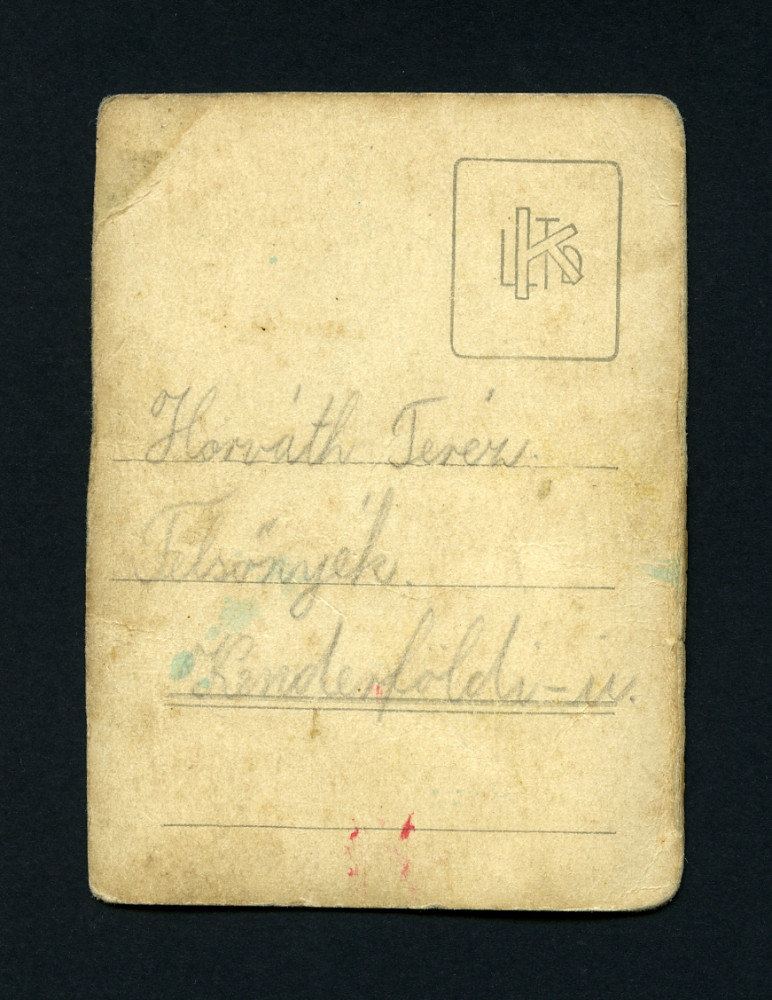 Horváth Teréz.
Felsőnyék.
Kenderföldi-u.